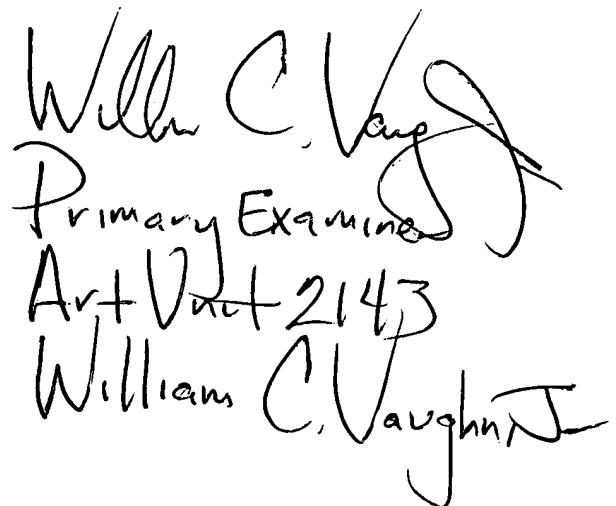 William C. Vaug
Primary Examiner
Art Unit 2143
William C. Vaughn, Jr